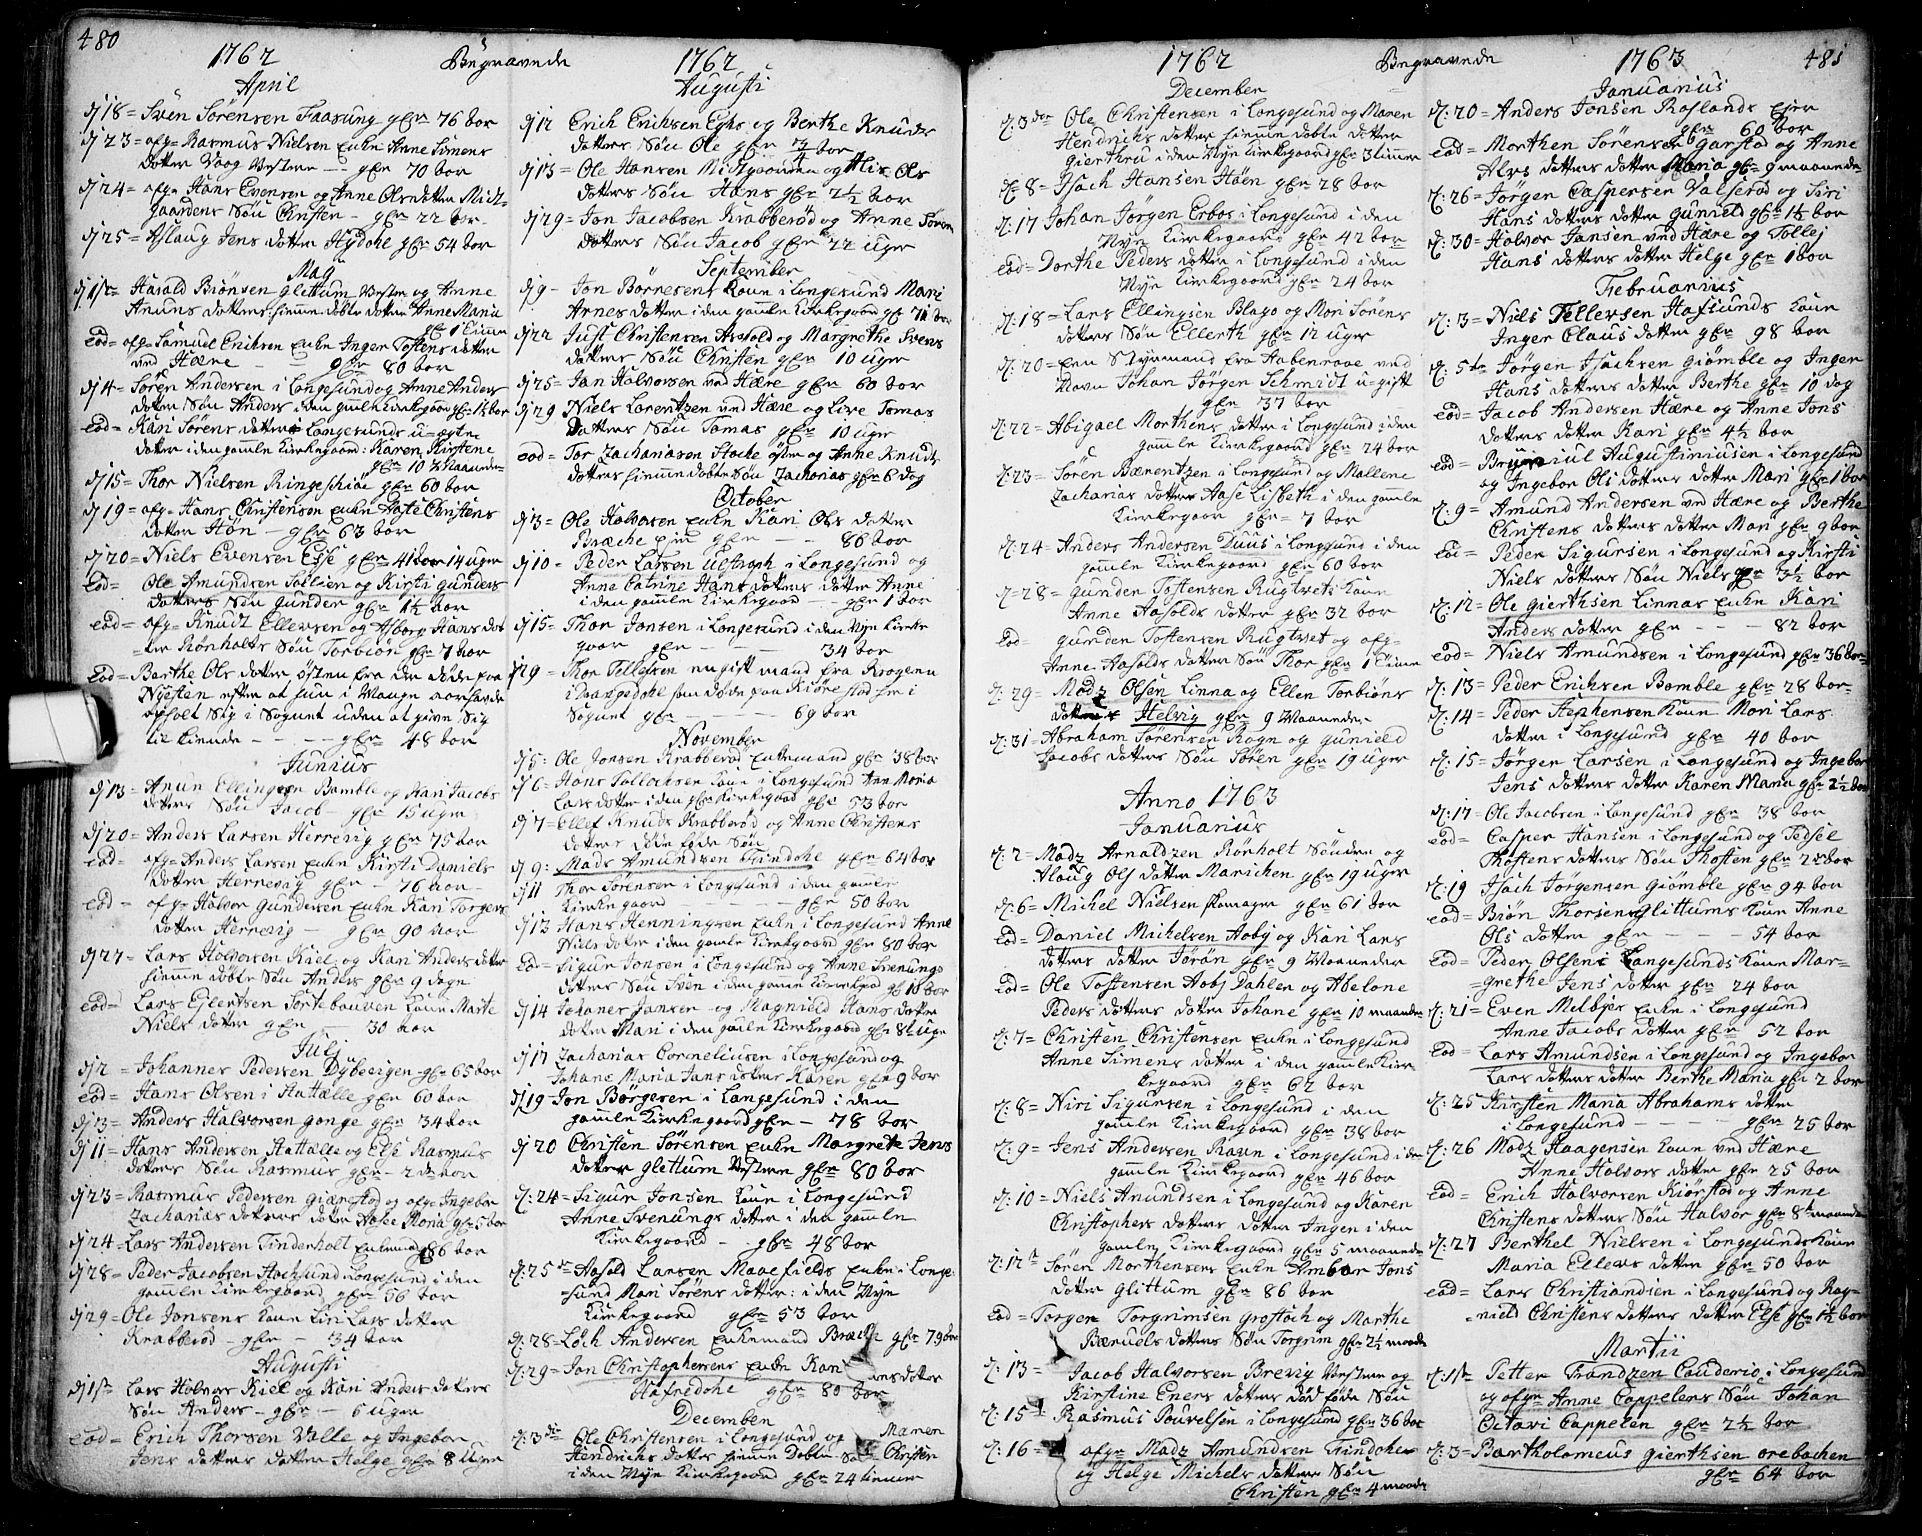 480
1762
Begravede
1762
April
d/18= Sven Sörensen Faasung gl: 76 aar
d/23= afg= Rasmus Nielsen Enke Anne Simens
Dotter Vaag Vestre -- gl: 70 aar
d/24= afg= Hans Evensen og Anne Olsdotter Midt-
gaardens Sön Christen - gl: 22 aar
d/25= Aslaug Jens dotter Hydohl gl: 54 aar
May
d/1ste= Harald Biönsen glittum Vestre og Anne
Anuns dotters hiemme döbte dotter Anne Maria
gl: 1 time
eod= afg= Samuel Erichsen Enke Inger Tostens dotter
ved Hære -- gl: 80 aar
d/4= Sören Andersen i Langesund og Anne Anders
dotter Sön Anders i den gamle Kirkegaard gl: 1½ aar
eod= Kari Sörens dotter i Langesunds u=ægte
dotter i den gamle Kirkegaard: Karen Kirstene
gl: 10 Maaneder
d/15= Thor Nielsen Ringeschiöe gl: 60 aar
d/19= afg= Hans Christensen Enke Aaste Christens
dotter Høn - gl: 63 aar
d/20= Niels Evensen Esse gl: 41 aar 14 uger
eod= Ole Amundsen Sollien og Kirsti Gunders
dotters Sön Gunder gl: 1½ aar
eod= afg= Knudt Ellevsen og Asborg Hans dot
ter Rönholts Sön Torbiön gl: 7 aar
eod= Barthe Ols dotter östen fra der döde paa
Niesten efter at hun i Mange aar havde
opholt Sig i Sognet uden at give Sig
til kiende ---- gl: 48 aar
Junius
d/13= Anun Ellingsen Bamble og Kari Jacobs
dotters Sön Jacob - gl: 15 uger
d/20= Anders Larsen Herrevig gl: 75 aar
eod= afg= Anders Larsen Enke Kirsti Daniels
dotter Herrevig - gl: - 76 aar
eod= afg= Halvor Gundersen Enke Kari Torgers
dotter Herrevig - gl: 90 aar
d/27= Lars Halvorsen Kiel og Kari Anders dotter
hiemme döbte Sön Anders gl: 9 dage
eod= Lars Ejertsen Sortebaaven Kone Marte
Niels dotter gl: - 30 aar
Julj
d/2= Johannes Pedersen Dybevigen gl: 65 aar
eod= Hans Olsen i Hattælle gl: 60 aar
d/3= Anders Halvorsen gonge gl: 34 aar
d/11= Hans Andersen Hattælle og Else Rasmus
dotters Sön Rasmus gl: - 2 aar
d/23= Rasmus Pedersen Giærestad og afg= Ingebor
Zacharias dotters dotter Aase Maria gl: 5 aar
d/24= Lars Andersen Tinderholt Enkemand 86 aar
d/28= Peder Jacobsen i Langesund i den
gamle Kirkegaard gl: 56 aar
d/29= Ole Jonsens Kone Liv Lars dotter
Krabberöd - gl: - 34 aar
Augusti
d/1ste Lars Halvors Kiel og Kari Anders dotters
Sön Anders - gl: - 6 uger
eod= Erich Thorsen Valle og Ingebor
Jens dotters dotter Helge gl: 8 uger
Augusti
d/12 Erich Erichsen Eghs og Berthe Knuds
dotters Sön Ole gl: ¾ aar
d/13= Ole Hansen Midtgaarden og Alis Ols
dotters Sön Hans gl: 2½ aar
d/29= Jon Jacobsen Krabberöd og Anne Sören
dotters Sön Jacob gl: 22 uger
September
d/9= Jon Börresens Kone i Langesund Mari
Arnes dotter i den gamle Kirkegaard gl: 71 aar
d/22 Just Christensen Aasold og Margrethe Svens
dotters Sön Christen gl: 10 uger
d/25= Jan Halvorsen ved Hære gl: 60 aar
d/29 Niels Larentzen ved Hære og Live Tomas
dotters Sön Tomas gl: 10 uger
eod= Tor Zachariasen Stoche östen og Anne Knuds
dotters hiemmedöbte Sön Zacharias gl: 6 dag
October
d/3= Ole Halvorsen Enke Kari Ols dotter
Bræche Eie gl: -- 86 aar
d/10= Peder Larsen Ulstrph i Langesund og
Anne Catrine Hans dotters dotter Anne
i den gamle Kirkegaard -- gl: 1 aar
d/15= Thor Jonsen i Langesund i den Nye Kirke
gaar gl: --- 34 aar
d/29= Thor Tellefsen en gift mand fra Krogene
i Drangedahl som döde paa Kiörestad her i
Sognet gl: ---- 69 aar
November
d/5= Ole Jonsen Krabberöd Enkemand gl: 38 aar
d/6= Hans Tellefsen Kone i Langesund Ane Maria
Lars dotter i den Kirkegaard gl: 53 aar
d/7= Ellef Knuds Krabberöd og Anne Christens
dotters död föde Sön
d/9: Mads Amundsen Tindohl gl: 64 aar
d/11 Thor Sörensen i Langesund i den gamle
Kirkegaard ---- gl: 50 aar
d/12 Hans Henningsen Enke i Langesund Anne
Niels doter i den gamle Kirkegaard gl: 80 aar
eod= Sigur Jonsen i Langesund og Anne Svenungs
dotters Sön Sven i den gamle Kirkegaard gl: 10 aar
d/14 Johanes Jansen og Ragnield Hans dotter
dotter Mari i den gamle Kirkegaard gl: 8 uger
d/17 Zacharias Corneliusen i Langesund og
Johane Maria Jans doters Karen gl: 9 aar
d/19= Jon Börgesen i Langesund i den
gamle Kirkegaard gl: - 78 aar
d/20 Christen Sörensen Enke Margrete Jens
doter Glittum Vestre gl: 80 aar
d: 24= Sigur Jonsen Kone i Langesund
Anne Svenungs dotter i den gamle
Kirkegaard - gl: 48 aar
d: 25= Harald Larsen Maaefields Enke i Lange:
sund Mari Sörens dotter: i den Nye
Kirkegaard gl: 53 aar
d: 28= Loch Andersen Enkemand Bræche gl: 79 aar
d: 29= Jon Christophersens Enke Kari
dotter
Hafredohl gl: 80 aar
December
d: 3die Ole Christensen i Langesund og Maren
Hendrichs dotter hiemme Döbte Sön Christen
i den Nye Kirkegaard gl: 24 timer
1762
Begravede
1763
481
December
d: 3die Ole Christensen i Langesund og Maren
Hendrichs dotter hiemme döbte dotter
Gierthru i den Nye Kirkegaard gl: 3 timer
d: 8= Isach Hansen Höen gl: 28 aar
d: 17 Johan Jörgen Erbos i Langesund i den
Nye Kirkegaard gl: 42 aar
eod= Dorthe Peders dotter i Langesund i den
Nye Kirkegaard gl: 24 aar
d: 18= Lars Ellingsen Blago og Mari Sörens
dotters Sön Ellerth gl: 12 uger
d: 20= Een Styrmand fra Aabenraae ved
Navn Johan Jörgen Schmidt ugift
gl: 37 aar
d: 22= Abigael Morthens dotter i Langesund i den
gamle Kirkegaard gl: 24 aar
d: 23= Sören Bærentzen i Langesund og Mallene
Zacharias dotter Aase Lisbeth i den gamle
Kirkegaar gl: 7 aar
d: 24= Anders Andersen Duus i Langesund i den
gamle Kirkegaard gl: 60 aar
d= 28= Gunder Tostensen Rugtvets Kone
Anne Aasolds dotter gl: 32 aar
eod= Gunder Tostensen Rugtvet og afg=
Anne Aasolds dotter Sön Thor gl: 1 time
d: 29= Madz Olsen Linna og Ellen Torbiöns
dotter Helvig gl: 9 Maaneder
d: 31= Abraham Sörensen Rogn og Gunield
Jacobs dotters Sön Sören gl: 19 uger
Anno 1763
Januarius
d: 2= Madz Arnaldzen Rönholt Söndre og
Aloug Ols dotter Marichen gl: 19 uger
d: 6= Michel Nielsen skomager gl: 61 aar
eod= Daniel Michelsen Aaby og Kari Lars
dotters dotter Jörön gl: 9 Maaneder
eod= Ole Tostensen Aaby Dahlen og Abelone
Peders dotters dotter Johane gl: 10 maaneder
d: 7= Christen Christensen Enke i Langesund
Anne Simens dotter i den gamle Kir-
kegaard gl: 62 aar
d: 8= Niri Sigursen i Langesund i den
gamle Kirkegaard gl: 38 aar
d: 9= Jens Andersen Ravn i Langesund i den
gamle Kirkegaard gl: 46 aar
d: 10= Niels Amundsen i Langesund og Karen
Christophers dotters dotter Ingen i den
gamle Kirkegaard gl: 5 maaneder
d: 12te Sören Morthensens Enke Ambor Jons
dotter Glittum gl: 86 aar
eod= Torger Torgrimsen Grostoch og Marthe
Bænuels dotters Sön Torgrim gl: 2½ maaneder
d: 13= Jacob Halvorsen Brevig Vestre og
Kirstine Eners dotters död föde Sön
d: 15= Rasmus Pouvelsen i Langesund gl: 36 aar
d: 16= afg= Madz Amundsen Tindohl
og Helge Michels dotters Sön
Christen gl: 4 maaneder
Januarius
d: 20= Anders Jensen Roslands Eie
gl: 60 aar
eod= Morthen Sörensen Garstad og Anne
Alvs dotters dotter Maria gl: 9 maaneder
d: 26= Jörgen Caspersen Valleröd og Siri
Hans dotters dotter Gunield gl: 1½ aar
d: 30= Halvor Jansen ved Hære og Tollej
Hans dotters dotter Helge gl: 1 aar
Februarius
d: 3= Niels Tellevsen Hafsunds Kone
Inger Claus dotter gl: 98 aar
d: 5te Jörgen Isachsen Giömble og Inger
Hans dotters dotter Berthe gl: 10 dag
eod= Jacob Andersen Hære og Anne Jons
dotters dotter Kari gl: 4½ aar
eod= Augustiniusen i Langesund
og Ingebor Ols dotters dotter Mari gl: 1 aar
d: 9= Amund Andersen ved Hære og Berthe
Christens dotters dotter Mari gl: 9 aar
eod= Peder Sigursen i Langesund og Kirsti
Niels dotters Sön Niels gl: 3½ aar
d: 12= Ole Gierthsen Linnas Enke Kari
Anders dotter gl: --- 82 aar
eod= Niels Amundsen i Langesund gl: 36 aar
d: 13= Peder Erichsen Bamble gl: 28 aar
d: 14= Peder Stephensen Kone Mari Lars
dotter i Langesund gl: 40 aar
d: 15= Jörgen Larsen i Langesund og Ingebor
Jens dotters dotter Karen Maria gl: 2½ aar
d: 17= Ole Jacobsen i Langesund gl: 38 aar
eod= Casper Hansen i Langesund og Tedsel
Thostens dotters Sön Thosten gl: 2 aar
d: 19 Isach Jörgensen Giömble gl: 94 aar
eod= Biön Thorsen Glittums Kone Anne
Ols dotter gl: --- 54 aar
eod= Peder Olsen i Langesunds Kone Mar-
=grethe Jens dotter gl: 24 aar
d: 21= Even Melbyes Enke i Langesund
Anne Jacobs dotter gl: 52 aar
eod= Lars Amundsen i Langesund og Ingebor
Lars dotters dotter Berthe Maria gl: 2 aar
d: 25 Kirsten Maria Abrahams dotter
i Langesund ---- gl: 25 aar
d: 26 Madz Haagensen Kone ved Hære
Anne Halvors dotter gl: 25 aar
eod= Erich Halvorsen Kiörstad og Anne
Christens dotters Sön Halvor gl: 8 maaneder
d: 27 Berthel Nielsen i Langesunds Kone
Maria Ellevs dotter gl: 50 aar
eod= Lars Christiandsen i Langesund og Rag-
=nield Christens dotters dotter Else gl: 1½ aar
Martii
d: 1ste Petter Trandzen Couderio i Langesund
og afg= Anne Cappelens Sön Johan
Octavi Cappelen gl: 2½ aar
d: 3= Bartholomeus Gierthsen Orebachen
gl: 64 aar